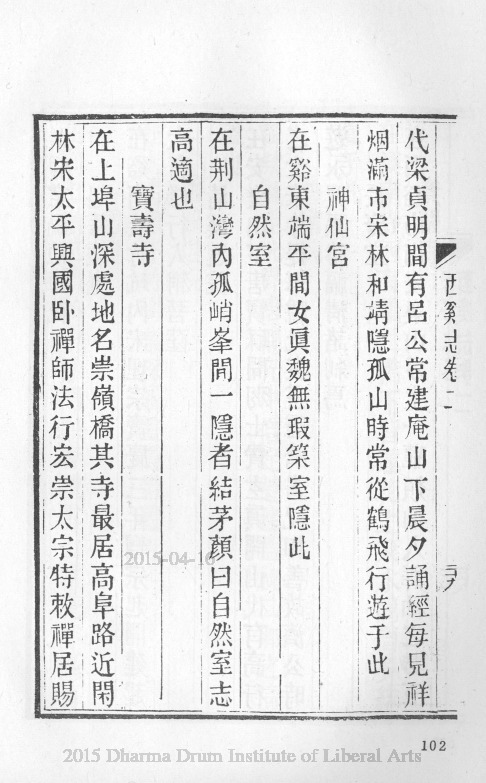 西谿志卷二
代梁貞明間有呂公常建庵山下晨夕誦經每見祥
烟滿市宋林和靖隱孤山時常從鶴飛行遊于此
神仙宮
在谿東端平間女眞魏無瑕築室隱此
自然室
在荆山灣內孤峭峯間一隱者結茅顏曰自然室志
高適也
寶壽寺
在上埠山深處地名崇嶺橋其寺最居高阜路近閑
林宋太平興國卧禪師法行宏崇太宗特敕禪居賜
102
2015-04-16
2015 Dharma Drum Institute of Liberal Arts